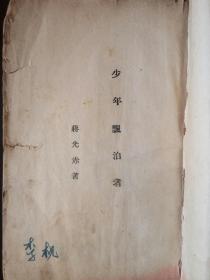 少年飄泊者
蔣光赤著
李机